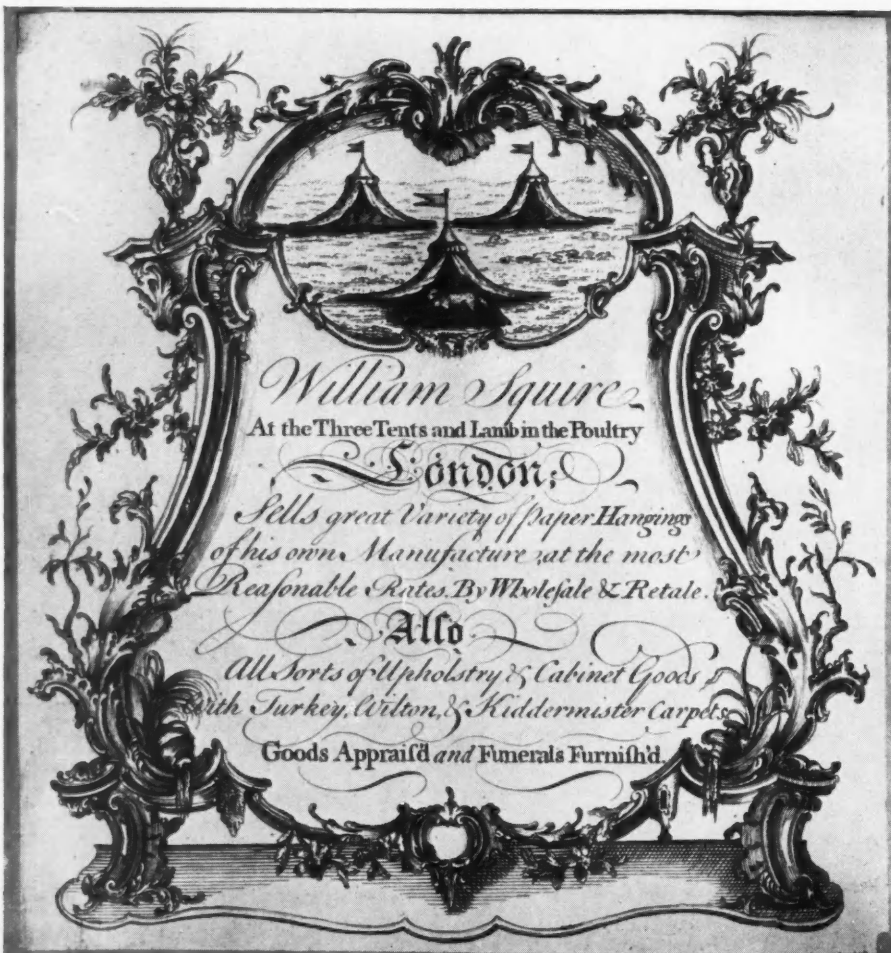 William Squire
At the Three Tents and Lamb in the Poultry
London;
Sells great Variety of Paper Hangings
of his own Manufacture, at the most
Reaſonable Rates. By Wholeſale & Retale.
Alſo
All Sorts of Upholstry & Cabinet Goods,
With Turkey, Wilton, & Kiddermister Carpets
Goods Appraiſ'd and Funerals Furniſh'd.